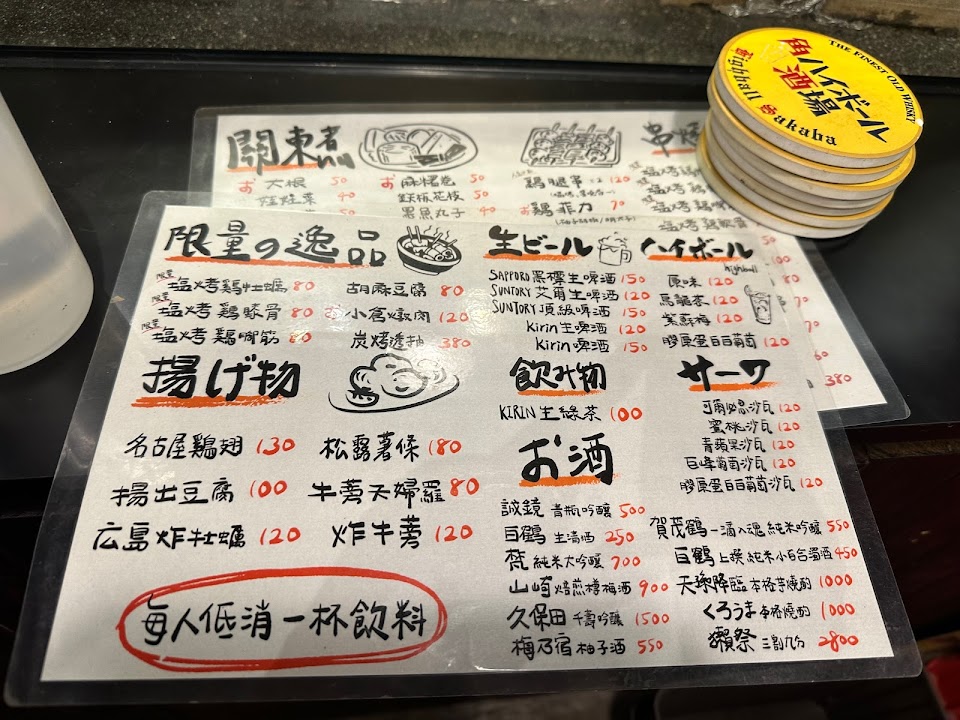 THE FINEST OLD WHISKY
角ハイボール
酒場
Highball Sakaba
關東煮
串燒
お 大根 50
娃娃菜 40
お 麻糬卷 50
鉄板花枝 50
墨魚丸子 40
鶏腿串 120
お 鶏菲力 70
限量の逸品
限量 塩烤鶏牡蠣 80
限量 塩烤鶏膝骨 80
限量 塩烤鶏啣筋 80
胡麻豆腐 80
小倉燉肉 120
炭烤透抽 380
揚げ物
名古屋鶏翅 130
揚出豆腐 100
広島炸牡蠣 120
松露薯條 180
牛蒡天婦羅 80
炸牛蒡 120
每人低消一杯飲料
生ビール
SAPPORO 黑標生啤酒 150
SUNTORY 艾爾生啤酒 120
SUNTORY 頂級啤酒 150
Kirin 生啤酒 120
Kirin 啤酒 150
ハイボール
highball
原味 120
烏龍茶 120
紫蘇梅 120
膠原蛋白白葡萄 120
飲み物
KIRIN 生綠茶 100
サーワ
可爾必思沙瓦 120
蜜桃沙瓦 120
青蘋果沙瓦 120
巨峰葡萄沙瓦 120
膠原蛋白白葡萄沙瓦 120
お酒
誠鏡 青瓶吟釀 500
白鶴 生清酒 250
梵 純米大吟釀 700
山崎 焙煎樽梅酒 900
久保田 千壽吟釀 1500
梅乃宿 柚子酒 550
賀茂鶴 一滴入魂 純米吟釀 550
白鶴 上撰 純米小白台濁酒 450
天孫降臨 本格芋燒酌 1000
くろうま 本格燒酌 1000
獺祭 三割九分 2800
380